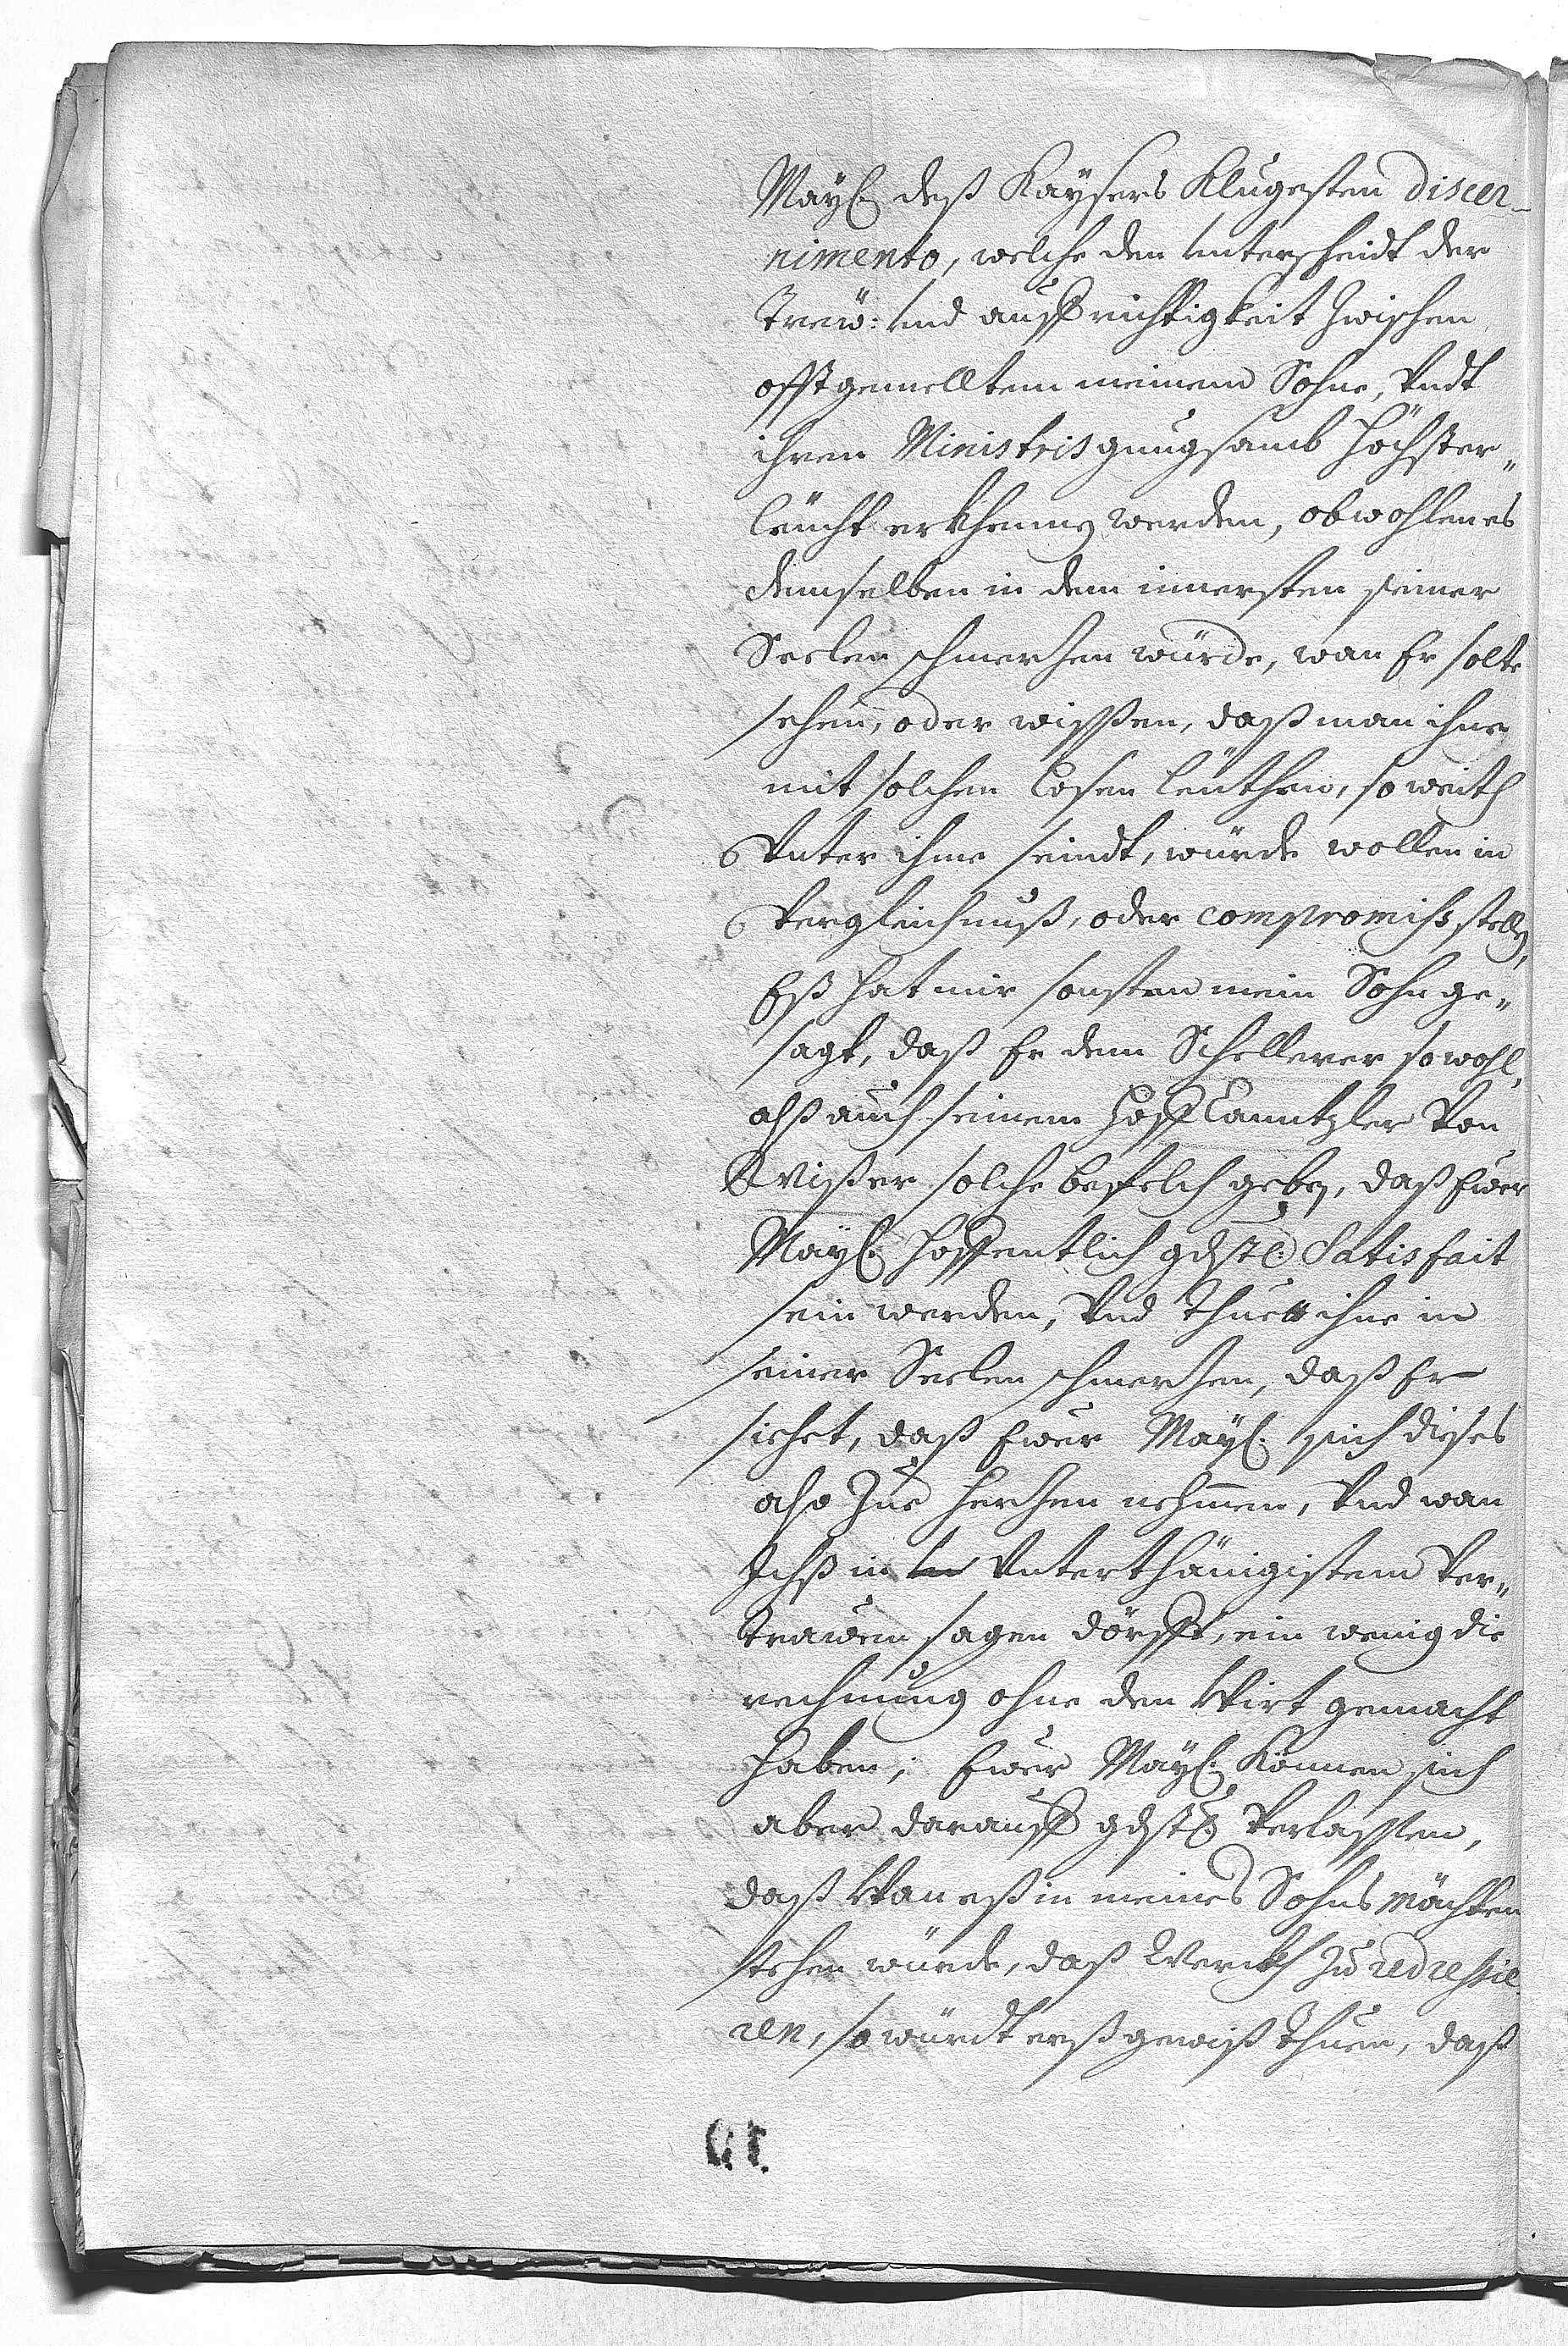 Mayl. deß Kaÿsers Klugesten discer-
nimento, welche den unterscheidt der
Trew: und auffrichtigkeit zwischen
offtgemelltem meinem Sohne, Vndt
ihren Ministris gnugsamb höchster„
leücht erkhennen werden, obwohlen es
demselben in dem innersten seiner
Seelen schmerzen würde, wan Er solte
sehen, oder wissen, daß man ihne
mit solchen losen leüthen, so weith
Vnter ihme seindt, würde wollen in
Vergleichnuß, oder compromiss stellen,
Eß hat mir sonsten mein Sohn ge„
sagt, daß Er dem Schellerer sowohl,
alß auch seinem HoffCanntzler Von
Wißer solche befelch geben, daß Ewer
Mayl. hoffentlich gdstl. Satisfait
sein werden, Vnd thue ihne in
seiner Seelen schmerzen, daß Er
siehet, daß Ewer Mayl. sich dieses
also zue herzen nehmen, Vnd wan
Ichß in Vnterthänigistem Ver„
trawen sagen dörffte, ein wenig die
rechnung ohne den Wirt gemacht
haben; Ewer Mayl. Können sich
aber darauff gdstl. Verlassen,
daß Wan eß in meines Sohns mächten
stehen würde, daß Werckh zu redressie
ren, so würdt erß gewiß thuen, daß